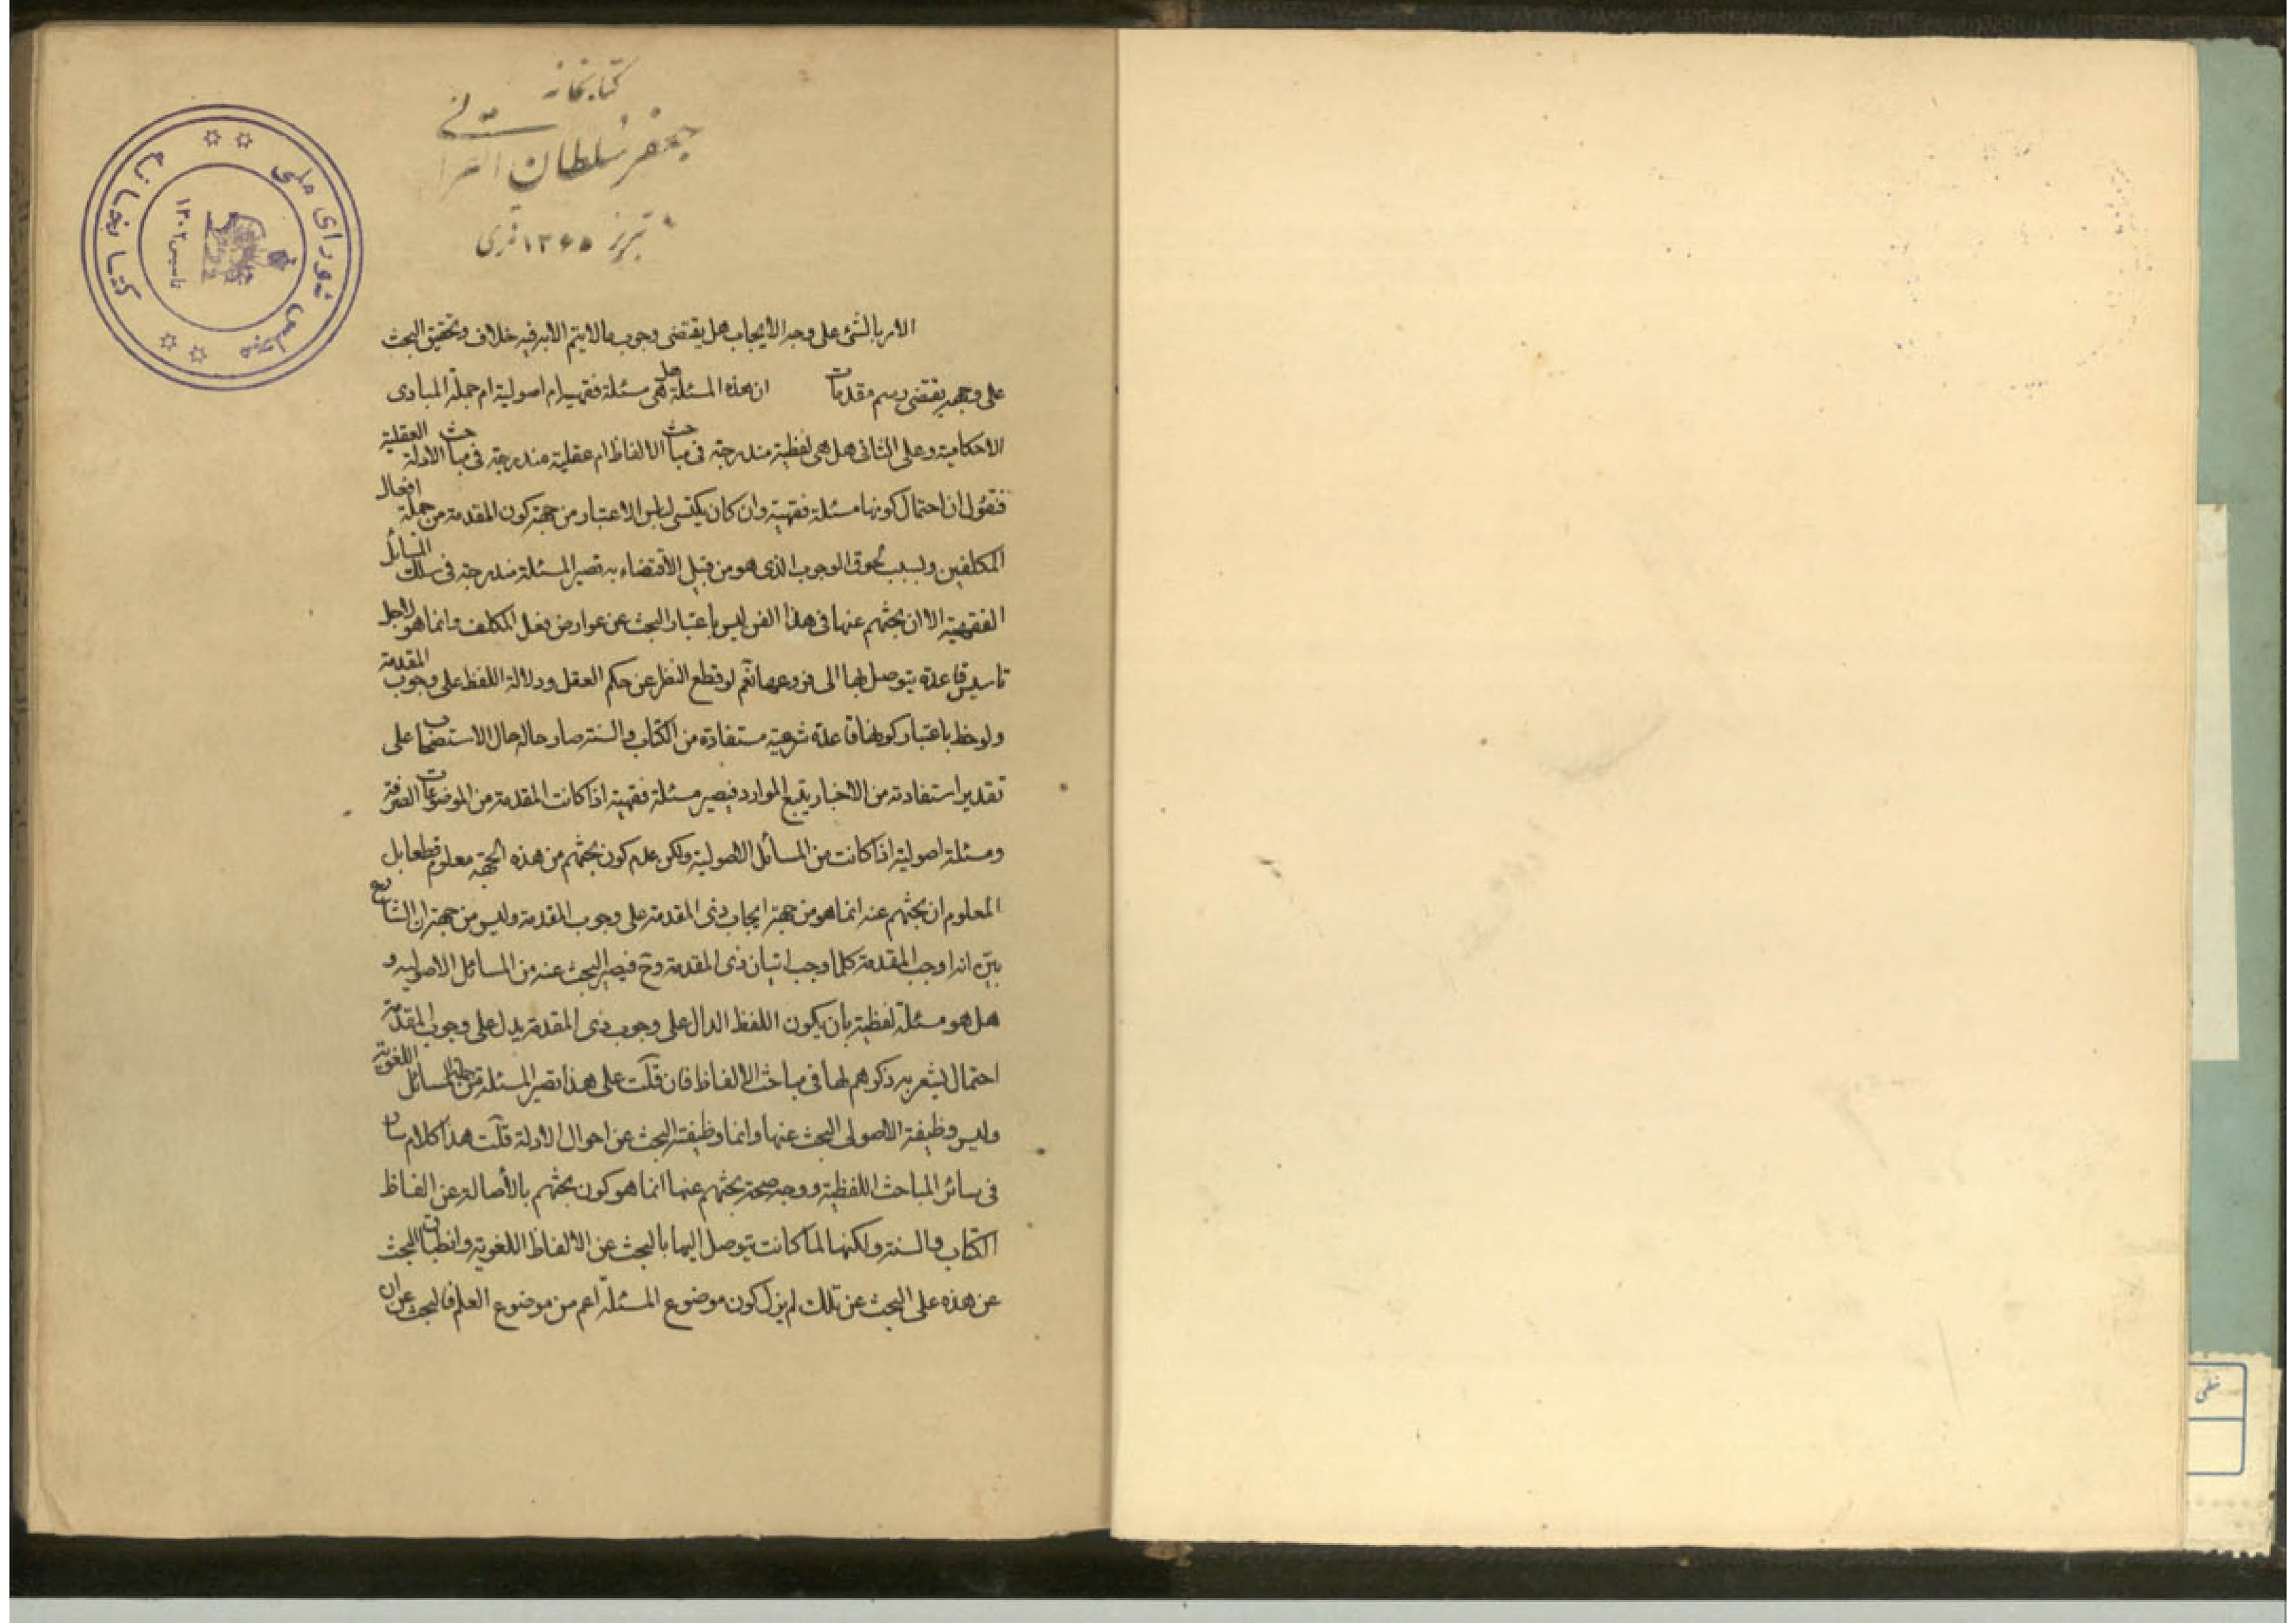 کتابخانه
جعفر سلطان القرائی
تبریز ۱۳۶۵ قمری
کتابخانه مجلس شورای ملی
تاسیس ۱۳۰۲
الامر بالشئ على وجه الایجاب هل یقتضى وجوب مالایتم الا به فیه خلاف وتحقیق البحث
على وجهه یقتضى رسم مقدمات ان هذه المسئلة هل هى مسئلة فقهیه ام اصولیة ام جملة المبادى
الاحکامیة وعلى الثانى هل هى لفظیة مندرجة فى مباحث الالفاظ ام عقلیة مندرجة فى مباحث الادلة العقلیة
فنقول ان احتمال کونها مسئلة فقهیة وان کان یکتسى لباس الاعتبار من جهة کون المقدمة من جملة افعال
المکلفین وبسبب لحوق الوجوب الذى هو من قبیل الاقتضاء به تصیر المسئلة مندرجة فى سلک المسائل
الفقهیة الا ان بحثهم عنها فى هذا الفن لیس باعتبار البحث عن عوارض فعل المکلف وانما هو لاجل
تاسیس قاعدة یتوصل بها الى فروعها نعم لو قطع النظر عن حکم العقل ودلالة اللفظ على وجوب المقدمة
ولوحظ باعتبار کونها قاعدة شرعیة مستفادة من الکتاب والسنة صار حاله حال الاستصحاب على
تقدیر استفادته من الاخبار یتبع الموارد فیصیر مسئلة فقهیة اذا کانت المقدمة من الموضوعات الصرفة
ومسئلة اصولیة اذا کانت من المسائل الاصولیة ولکن عدم کون بحثهم من هذه الجهة معلوم قطعا بل
المعلوم ان بحثهم عنه انما هو من جهة ایجاب ذى المقدمة على وجوب المقدمة ولیس من جهة ان الشارع
بین انه اوجب المقدمة کلما وجب اتیان ذى المقدمة وح فیصیر البحث عنه من المسائل الاصولیه و
هل هو مسئلة لفظیة بان یکون اللفظ الدال على وجوب ذى المقدمة یدل على وجوب المقدمة
احتمال یشعر به ذکرهم لها فى مباحث الالفاظ فان قلت على هذا تصیر المسئلة من جملة المسائل اللغویة
ولیس وظیفة الاصولى البحث عنها وانما وظیفته البحث عن احوال الادلة قلت هذا کلام سار
فى سائر المباحث اللفظیة ووجه صحة بحثهم عنها انما هو کون بحثهم بالأصالة عن الفاظ
الکتاب والسنة ولکنها لما کانت یتوصل الیها بالبحث عن الالفاظ اللغویة وانطباق البحث
عن هذه على البحث عن تلک لم یزل کون موضوع المسئلة اعم من موضوع العلم فالبحث عن ان